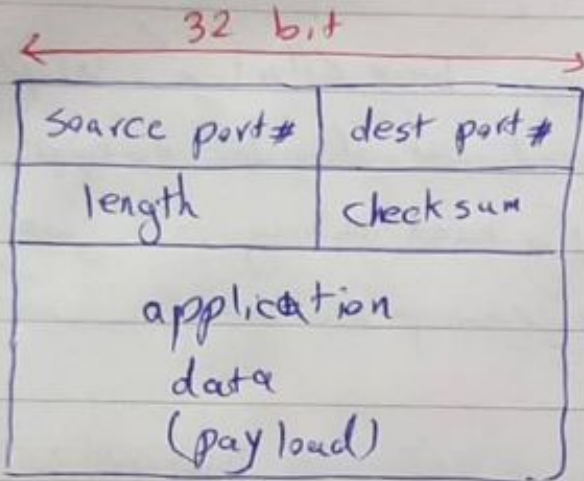 32 bit
soarce port# dest port#
length checksum
application
data
(payload)